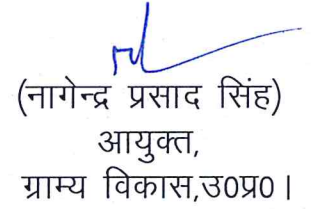 (नागेन्द्र प्रसाद सिंह)
आयुक्त,
ग्राम्य विकास,उ0प्र0।